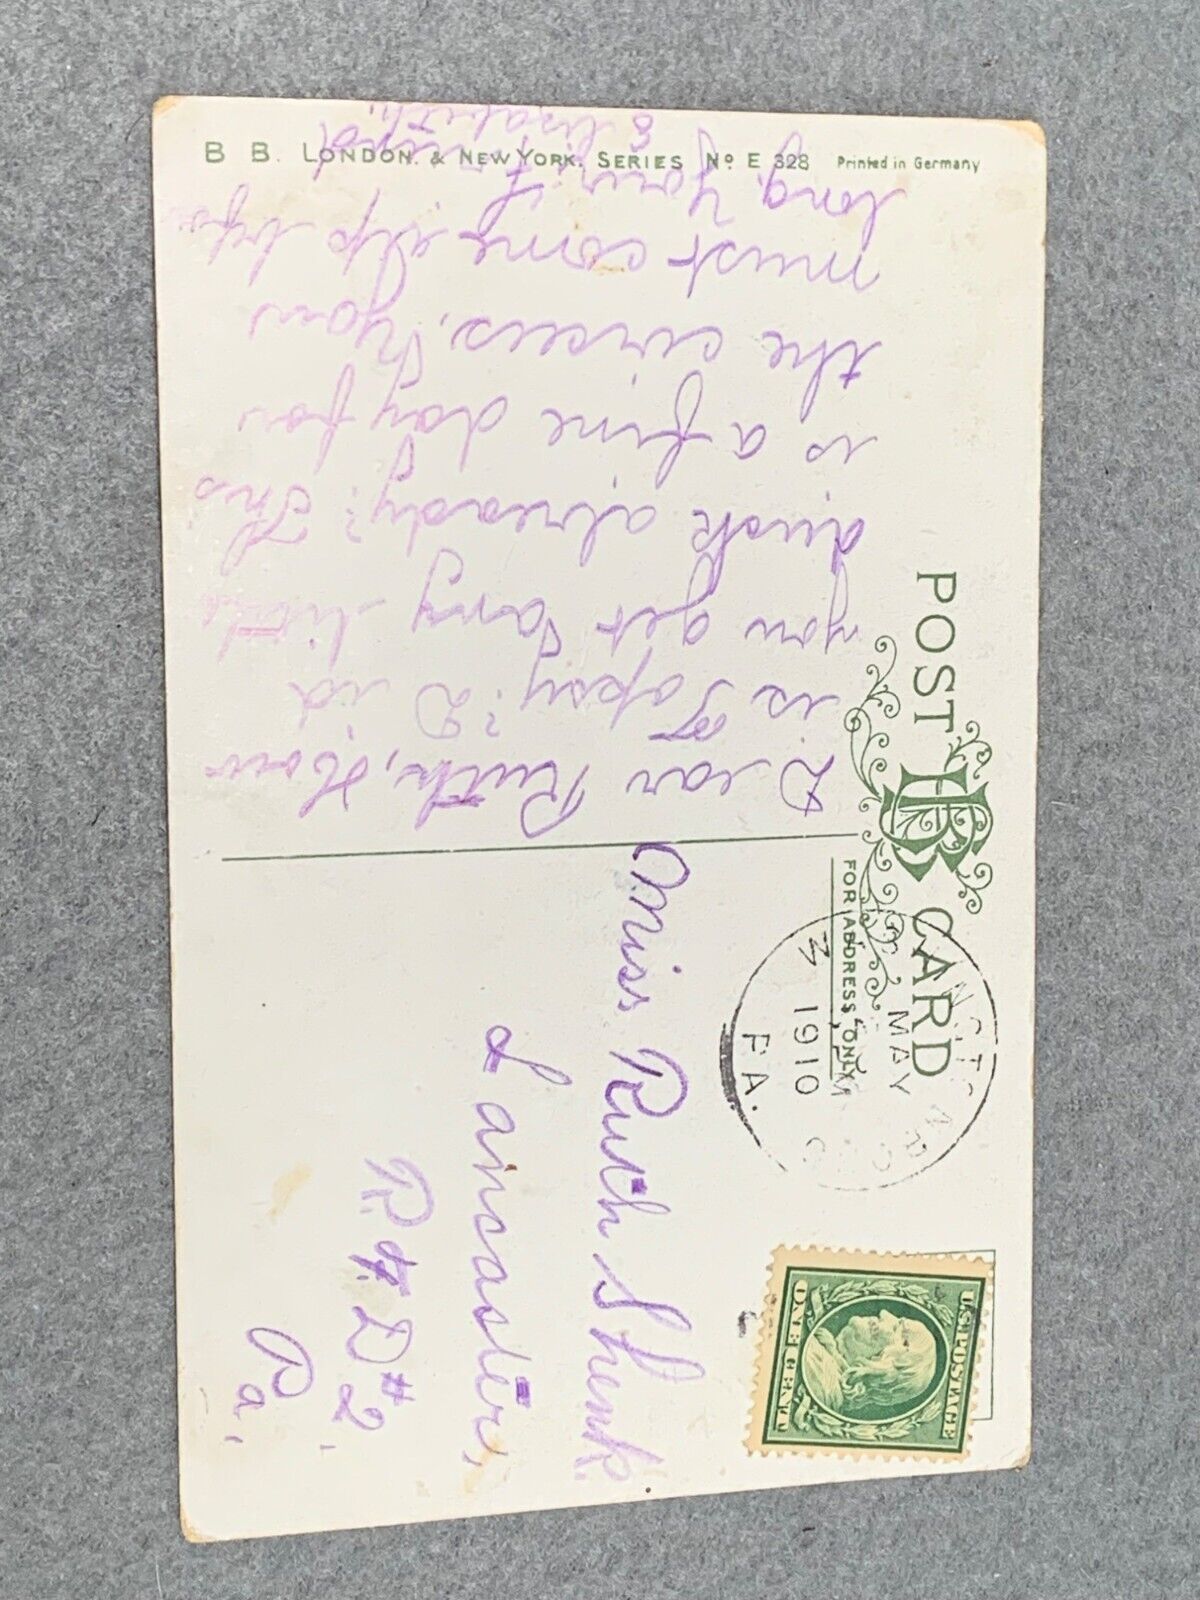 B B. LONDON & NEW YORK. SERIES No E 328 Printed in Germany
POST CARD
FOR ADDRESS ONLY
Dear Ruth, How
is Topsy? Did
you get any little
duck already? This
is a fine day for
the circus, You
must come up bfo
long, Your friend
Elizabeth.
MAY
3
1910
PA.
U.S. POSTAGE
ONE CENT
Miss Ruth Shenk
Lancaster,
R. F. D #2.
Pa.